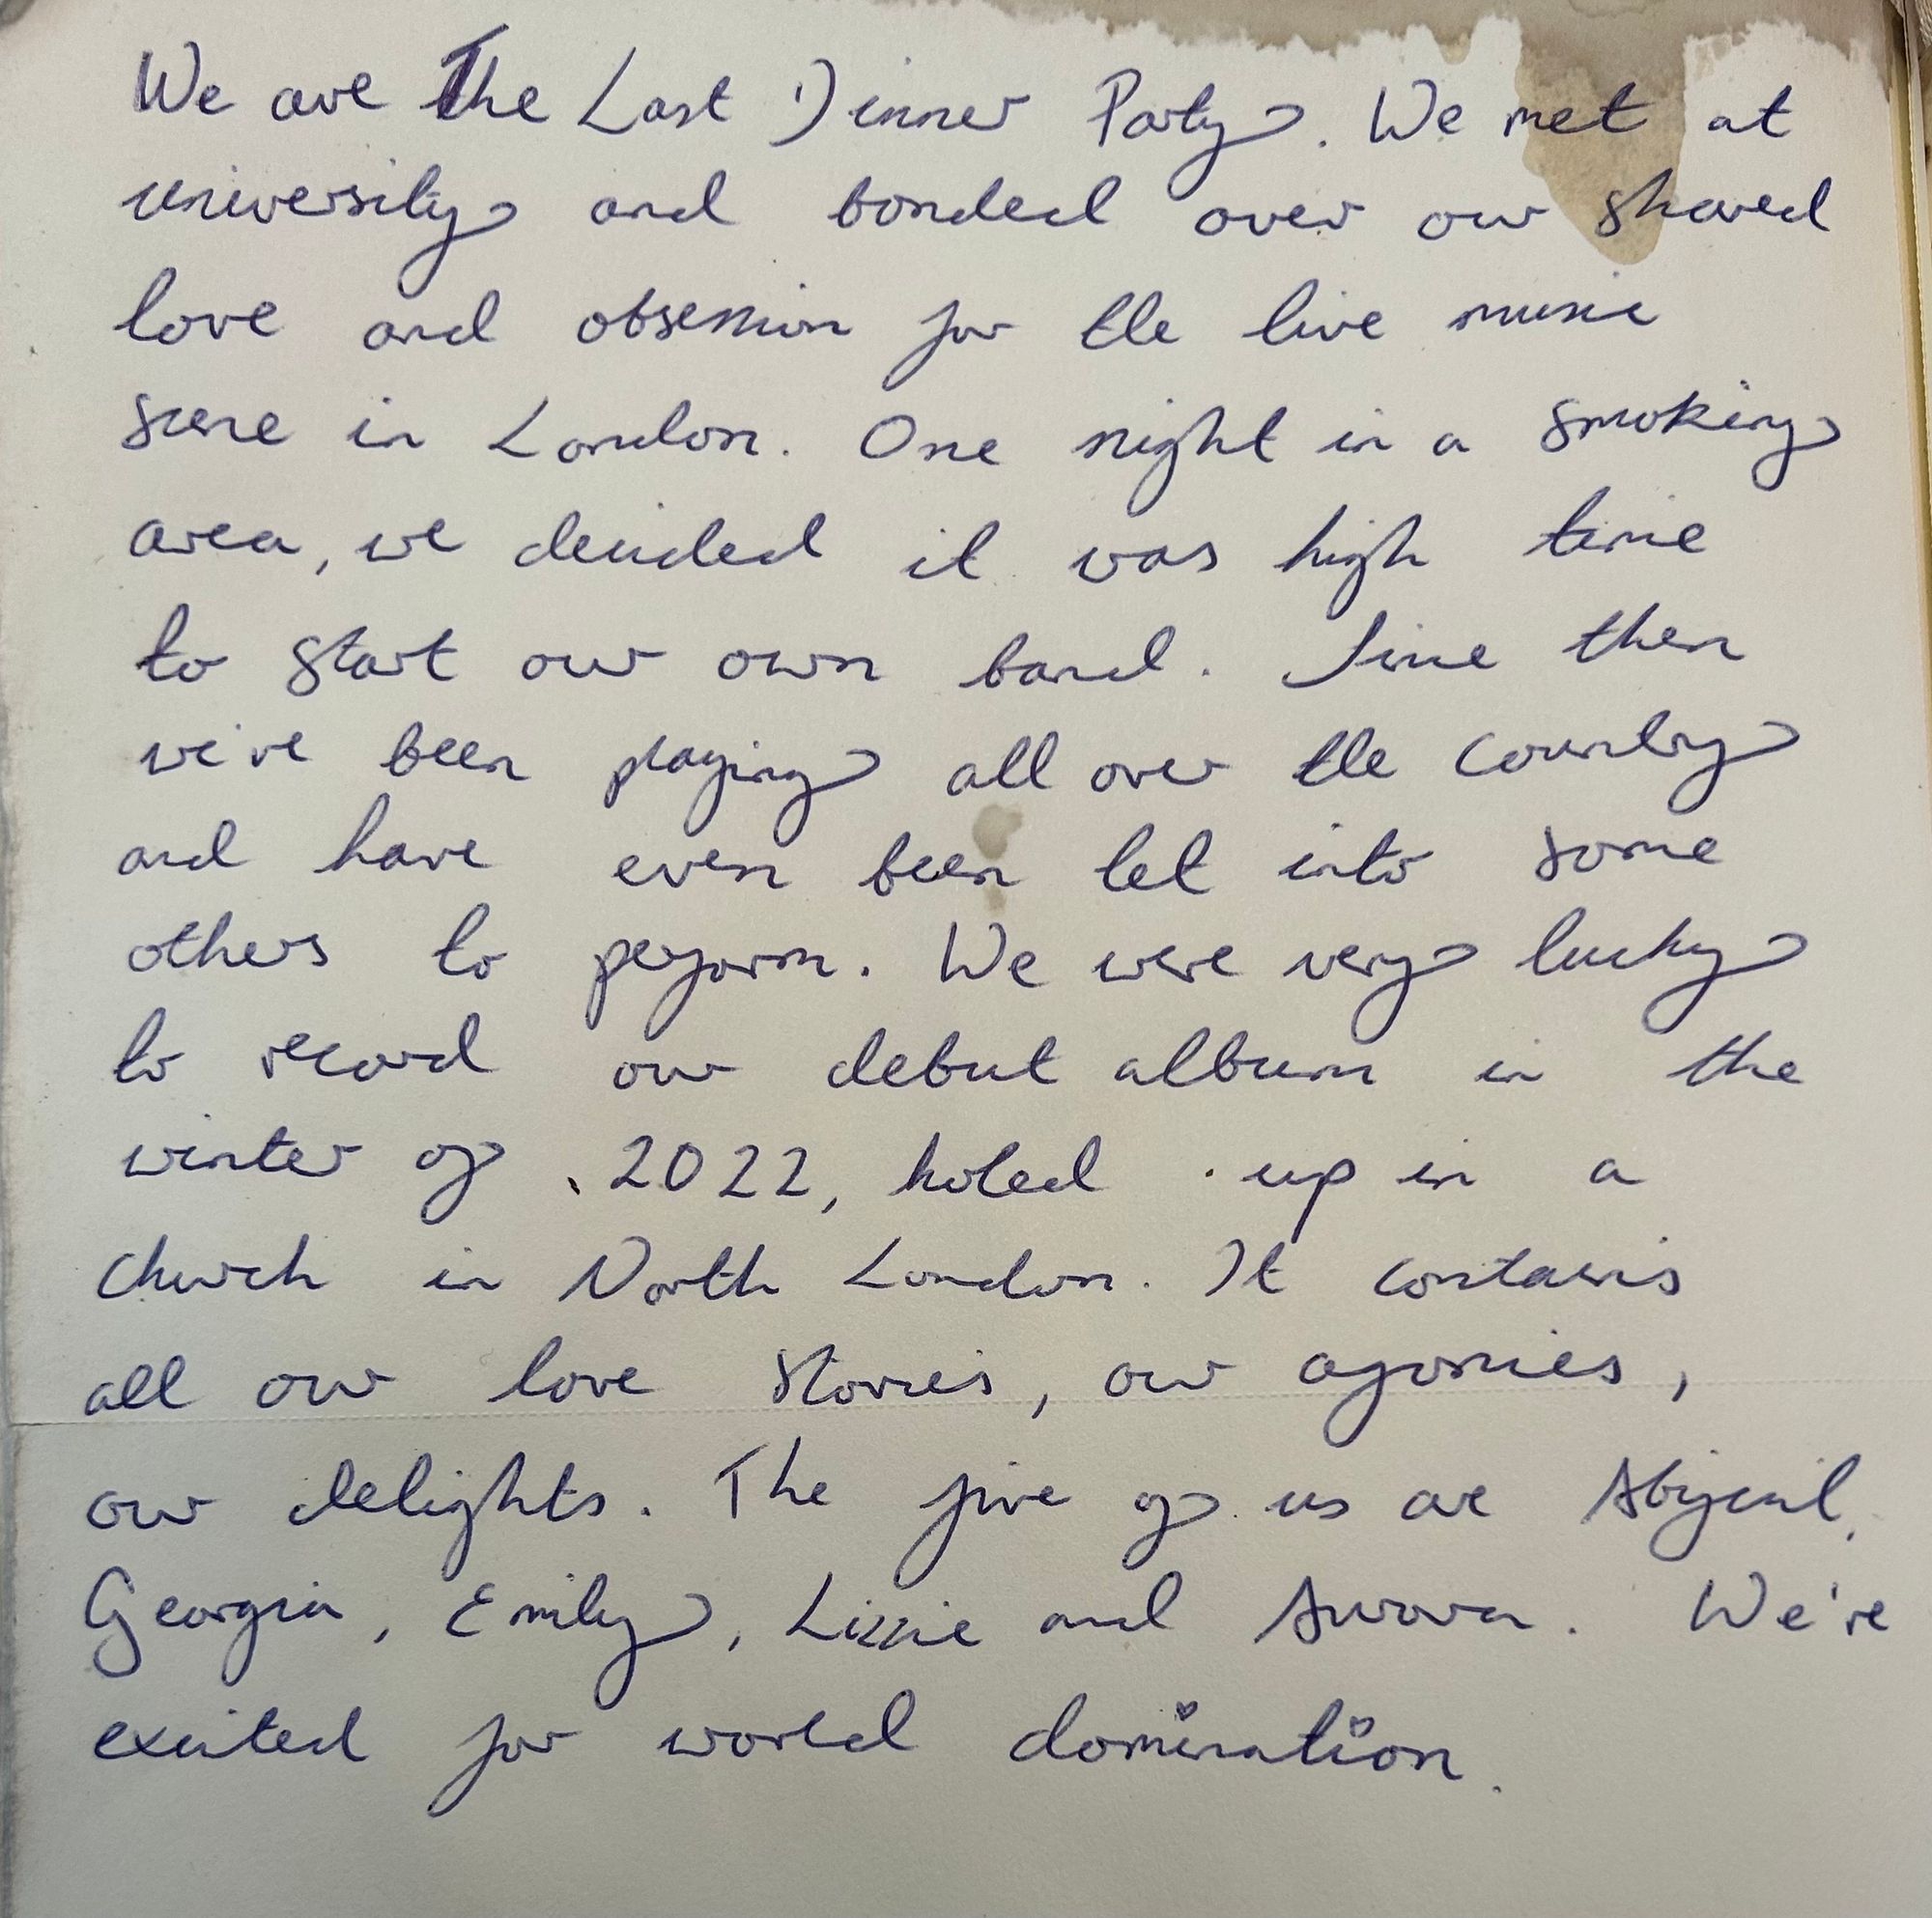 We are The Last Dinner Party. We met at
university and bonded over our shared
love and obsession for the live music
scene in London. One night in a smoking
area, we decided it was high time
to start our own band. Since then
we've been playing all over the country
and have even been let into some
others to perform. We were very lucky
to record our debut album in the
winter of 2022, holed up in a
church in North London. It contains
all our love stories, our agonies,
our delights. The five of us are Abigail,
Georgia, Emily, Lizzie and Aurora. We're
excited for world domination.